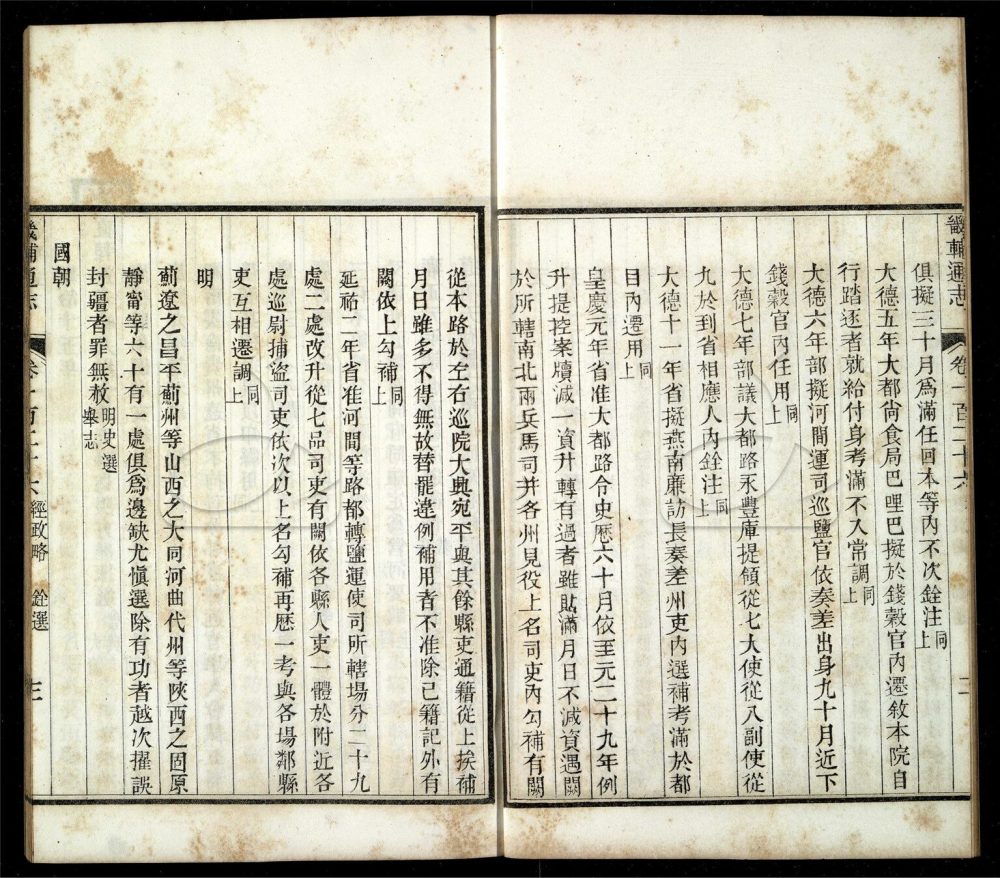 畿輔通志 卷一百二十六 二
俱擬三十月爲滿任回本等內不次銓注同上
大德五年大都尙食局巴哩巴擬於錢穀官內遷敘本院自
行踏逐者就給付身考滿不入常調同上
大德六年部擬河間運司巡鹽官依奏差出身九十月近下
錢穀官內任用同上
大德七年部議大都路永豐庫提領從七大使從八副使從
九於到省相應人內銓注同上
大德十一年省擬燕南廉訪長奏差州吏內選補考滿於都
目內遷用同上
皇慶元年省准大都路令史歷六十月依至元二十九年例
升提控案牘減一資升轉有過者雖貼滿月日不減資遇闕
於所轄南北兩兵馬司并各州見役上名司吏內勾補有闕
從本路於左右巡院大興宛平與其餘縣吏通籍從上挨補
月日雖多不得無故替罷違例補用者不准除已籍記外有
闕依上勾補同上
延祐二年省准河間等路都轉鹽運使司所轄場分二十九
處二處改升從七品司吏有闕依各縣人吏一體於附近各
處巡尉捕盜司吏依次以上名勾補再歷一考與各場鄰縣
吏互相遷調同上
明
薊遼之昌平薊州等山西之大同河曲代州等陝西之固原
靜甯等六十有一處俱爲邊缺尤愼選除有功者越次擢誤
封疆者罪無赦明史選舉志
國朝
畿輔通志 卷一百二十六 經政略 銓選 三